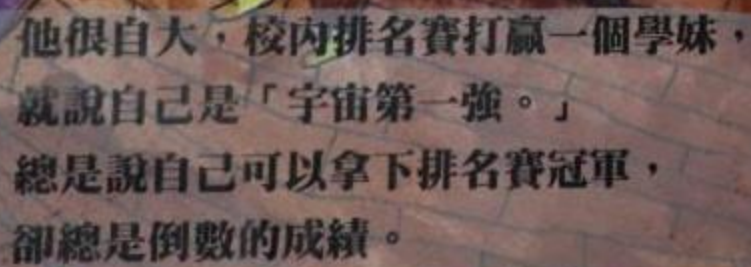 他很自大，校內排名賽打贏一個學妹，
就說自己是「宇宙第一強。」
總是說自己可以拿下排名賽冠軍，
卻總是倒數的成績。